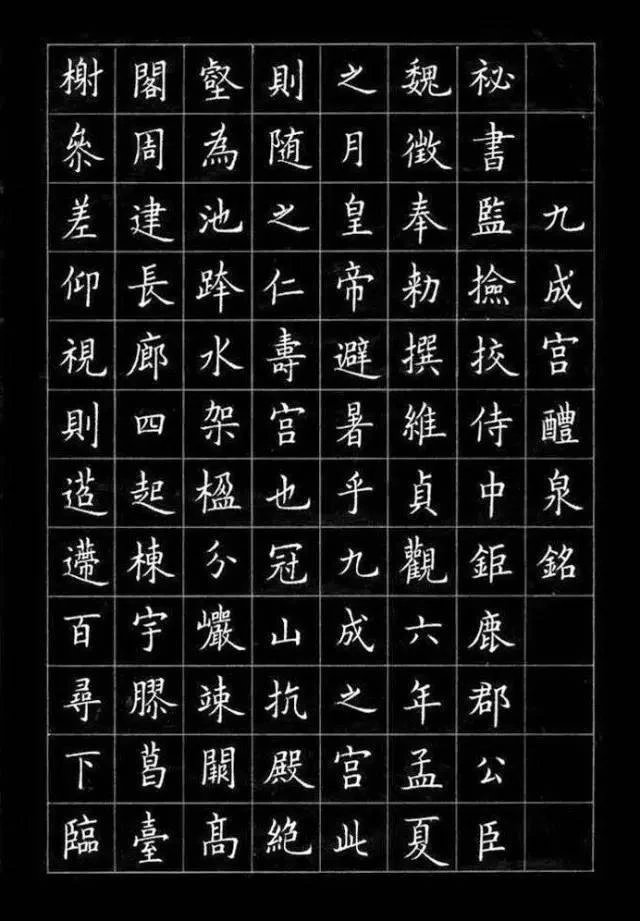 九成宫醴泉銘
祕書監撿挍侍中鉅鹿郡公臣
魏徵奉勑撰維貞觀六年孟夏
之月皇帝避暑乎九成之宫此
則随之仁壽宫也冠山抗殿絶
壑為池跨水架楹分巗竦闕髙
閣周建長廊四起棟宇膠葛臺
榭叅差仰視則迢遰百尋下臨